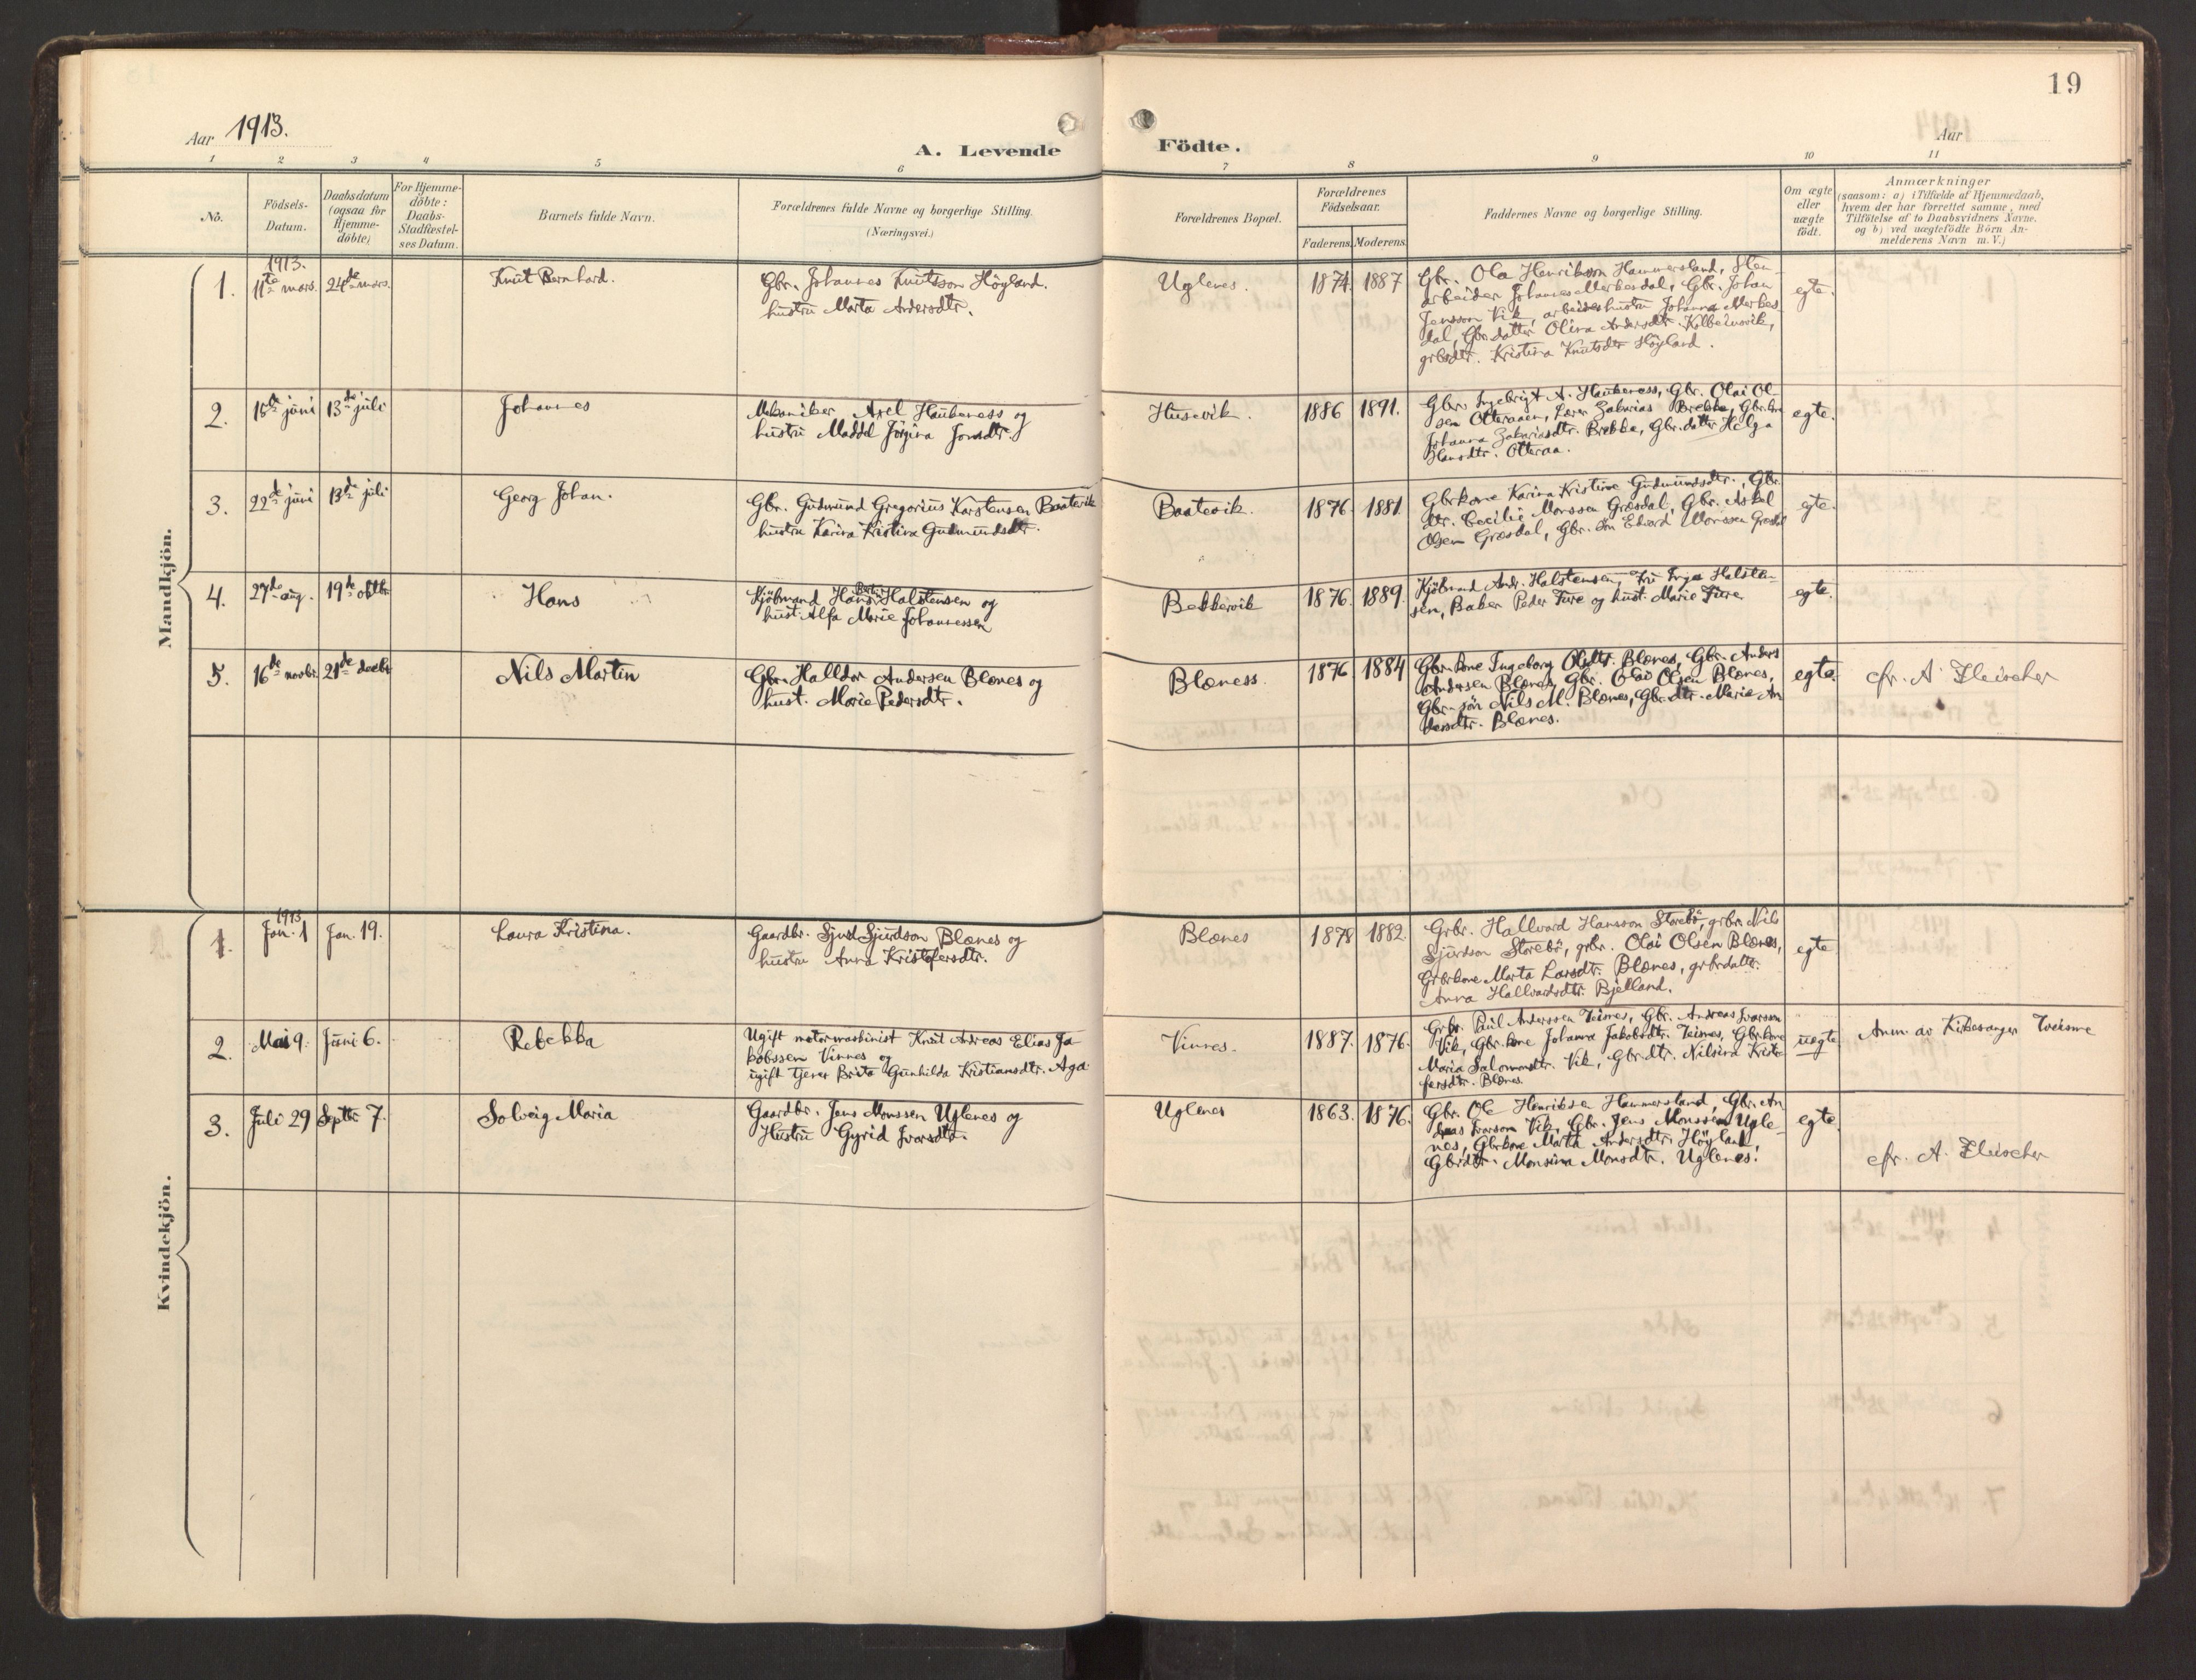 19
Aar 1913.
A. Levende Födte.
Aar
1 2 3 4 5 6 7 8 9 10 11
No.
Födsels-
Datum.
Daabsdatum
(ogsaa for
Hjemme-
döbte)
For Hjemme-
döbte:
Daabs-
Stadfæstel-
ses Datum.
Barnets fulde Navn.
Forældrenes fulde Navne og borgerlige Stilling.
(Næringsvei.)
Forældrenes Bopæl.
Forældrenes
Födselsaar.
Faderens. Moderens.
Faddernes Navne og borgerlige Stilling.
Om ægte
eller
uægte
födt.
Anmærkninger
(saasom: a) i Tilfælde af Hjemmedaab,
hvem der har forrettet samme, med
Tilföielse af to Daabsvidners Navne.
og b) ved uægtefödte Börn An-
melderens Navn m. V.)
Mandkjön.
1.
1913.
11te mars.
24de mars.
Knut Bernhard.
Gbr. Johannes Knutsson Höyland.
hustru Marta Andersdtr.
Uglenes.
1874. 1887
Gbr. Ola Henrikson Hammersland, Sten-
arbeider Johannes Merkesdal, Gbr. Johan
Jensson Vik, arbeideshustru Johanna Merkes
dal, Gbr. datter Olina Andersdtr. Kolbeinsvik,
grbrdtr. Kristina Knutsdtr Höyland.
egte.
2.
16de juni
13de juli
Johannes
Mekaniker Axel Haukeness og
hustru Maddel Jörgina Jonsdtr.
Husevik.
1886 1891.
Gbr. Ingebrigt A. Haukeness, Gbr. Olai Ol
sen Otteraaen, Lærer Zakarias Brekke, Gbr.kone
Johanna Zakariasdtr. Brekke, Gbr. datter Helga
Hansdtr. Otteraa.
egte.
3.
22de juni
13de juli
Georg Johan.
Gbr. Gudmund Gregorius Karstensen Baatevik
hustru Karina Kristina Gudmundsdtr.
Baatevik.
1876. 1881
Gbrkone Karina Kristine Gudmundsdtr., Gbr.
dtr. Cecilie Monssen Græsdal, Gbr. Askel
Olsen Græsdal, Gbr. sön Edvard Monssen Græsdal
egte.
4.
27de aug.
19de oktbr
Hans
Kjöbmand Hans Halstensen og
hust. Alfa Marie Johannessen
Bekkervik
1876. 1889.
Kjöbmand Andr. Halstensen, Fru Inga Halsten-
sen, Baker Peder Ture og hust. Marie Ture
egte.
5.
16de novbr.
21de decbr
Nils Martin
Gbr. Halldor Andersen Blænes og
hust. Marie Pedersdtr.
Blæness.
1876 1884
Gbr. kone Ingeborg Olsdtr. Blænes, Gbr. Anders
Andersen Blænes, Gbr. Olai Olsen Blænes,
Gbr. sön Nils M. Blænes, Gbr. dtr. Marie An
dersdtr. Blænes.
egte.
cfr. A Fleischer
Kvindekjön.
1.
1913.
Jan. 1
Jan. 19.
Laura Kristina.
Gaardbr. Sjurd Sjurdson Blænes og
hustru Anna Kristofersdtr.
Blænes
1878 1882.
Grbr. Hallvard Hansson Storebö, grbr. Nils
Sjurdson Storebö, grbr. Olai Olsen Blænes,
Grbrkone Marta Larsdtr. Blænes, grbrdatter
Anna Hallvardsdtr. Bjelland.
egte
2.
Mai 9.
Juni 6.
Rebekka
Ugift motormaskinist Knut Andreas Elias Ja
kobssen Vinnes og
ugift tjener Brita Gunhilda Kristiansdtr. Aga.
Vinnes.
1887. 1876.
Grbr. Paul Anderssen Teimes, Gbr. Andreas Ivarson
Vik, Gbr. kone Johanna Jakobsdtr. Teimes, Gbrkone
Maria Salomonsdtr. Vik, Gbr. dtr. Nilsina Kristo
fersdtr. Blænes.
uegte
Anm. av Kirkesanger
3.
Juli 29
Septbr 7.
Solveig Maria
Gaardbr. Jens Monssen Uglenes og
Hustru Gyrid Ivarsdtr.
Uglenes
1863. 1876.
Gbr. Ole Henriksen Hammersland, Gbr. An
dreas Ivarsom Vik, Gbr. Jens Monssen Ugle-
nes, Gbrkone Marta Andersdtr. Höyland,
Gbrdtr. Monsina Monsdtr. Uglenes.
egte
cfr. A. Fleischer